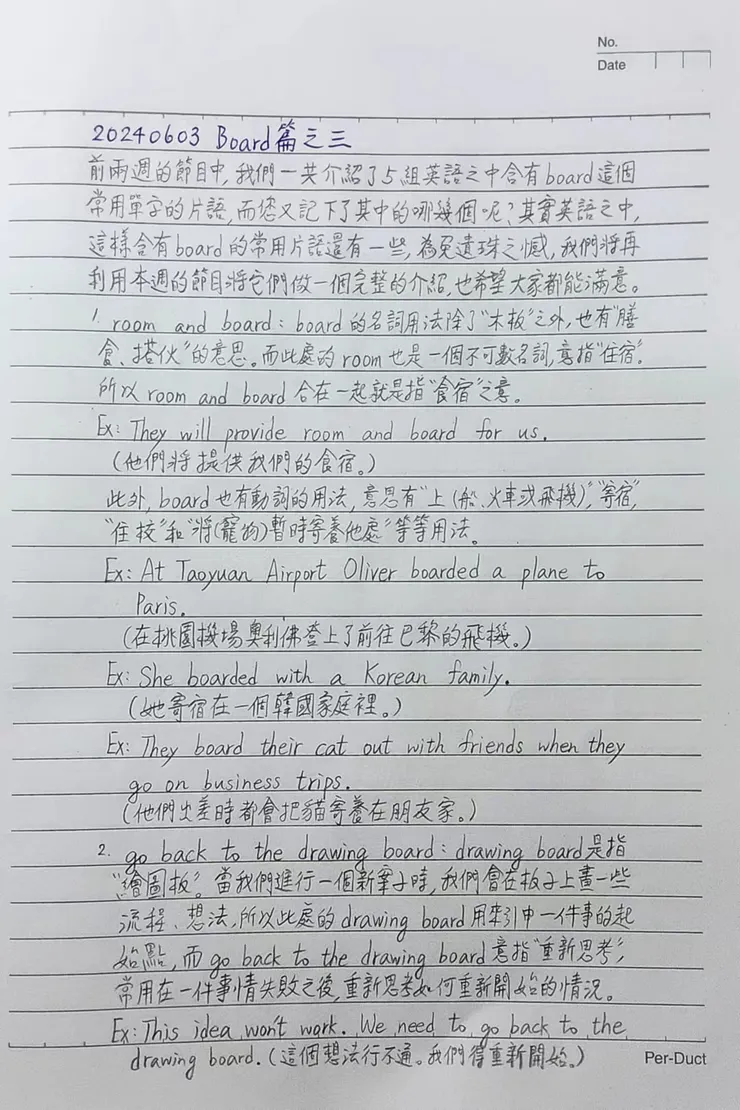 No.
Date
20240603 Board篇之三
前兩週的節目中,我們一共介紹了5組英語之中含有board這個
常用單字的片語,而您又記下了其中的哪幾個呢?其實英語之中,
這樣含有board的常用片語還有一些,為免遺珠之憾,我們將再
利用本週的節目將它們做一個完整的介紹,也希望大家都能滿意。
1. room and board:board的名詞用法除了"木板"之外,也有"膳
食、搭伙"的意思。而此處的room也是一個不可數名詞,意指"住宿"。
所以room and board合在一起就是指"食宿"之意。
Ex: They will provide room and board for us.
(他們將提供我們的食宿。)
此外,board也有動詞的用法,意思有"上(船、火車或飛機)","寄宿",
"住校"和"將(寵物)暫時寄養他處"等等用法。
Ex: At Taoyuan Airport Oliver boarded a plane to
Paris.
(在桃園機場奧利佛登上了前往巴黎的飛機。)
Ex: She boarded with a Korean family.
(她寄宿在一個韓國家庭裡。)
Ex: They board their cat out with friends when they
go on business trips.
(他們出差時都會把貓寄養在朋友家。)
2. go back to the drawing board:drawing board是指
"繪圖板"。當我們進行一個新案子時,我們會在板子上畫一些
流程、想法,所以此處的drawing board用來引申一件事的起
始點,而go back to the drawing board意指"重新思考",
常用在一件事情失敗之後,重新思考如何重新開始的情況。
Ex: This idea won't work. We need to go back to the
drawing board.(這個想法行不通。我們得重新開始。)
Per-Duct